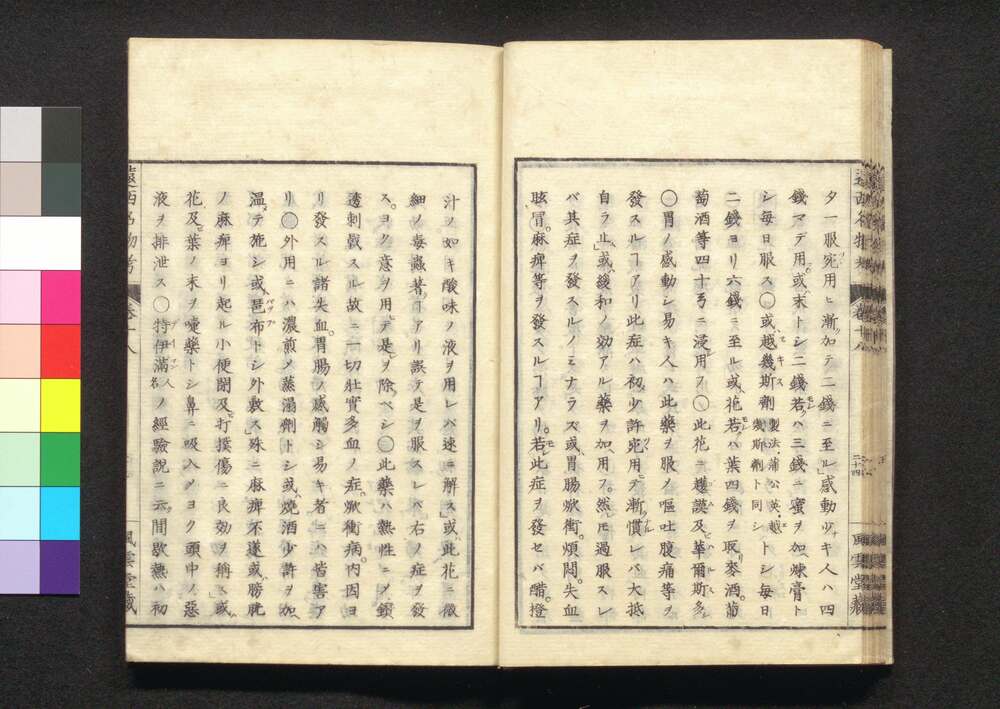 夕一服宛用ヒ漸ク加テ二錢ニ至ル感動少ナキ人ハ四
錢マデ用或ハ末トシ二錢若ハ三錢ニ蜜ヲ加煉膏ト
シ毎日服ス〇或越幾斯劑製法蒲公英越幾斯劑ト同シトシ毎日
二錢ヨリ六錢ニ至ル或花若ハ葉四錢ヲ取麥酒葡
萄酒等四十弓ニ浸用フ〇此花ニ越謨及華爾斯多
〇胃ノ感動シ易キ人ハ此藥ヲ服ノ嘔吐腹痛等ヲ
發スルヿアリ此症ハ初少許宛用テ漸慣レバ大抵
自ラ止或緩和ノ効アル藥ヲ加用フ然モ過服スレ
バ其症ヲ發スルノミナラズ或胃腸焮衝煩悶失血
眩冒麻痺等ヲ發スルヿアリ若此症ヲ發セバ醋橙
汁ノ如キ酸味ノ液ヲ用レバ速ニ解ス或此花ニ微
細ノ毒蟲著ヿアリ誤テ是ヲ服スレバ右ノ症ヲ發
スヨク意ヲ用テ是ヲ除ベシ〇此藥ハ熱性ニノ鑽
透刺戟スル故ニ一切壯實多血ノ症焮衝病内因ヨ
リ發スル諸失血胃腸ノ感觸シ易キ者ニハ皆害ア
リ〇外用ニハ濃煎ノ蒸溻劑トシ或燒酒少許ヲ加
温テ施シ或琶布トシ外敷ス殊ニ麻痺不遂或膀胱
ノ麻痺ヨリ起ル小便閉及打撲傷ニ良効ヲ稱ス或
花及葉ノ末ヲ嚏藥トシ鼻ニ吸入メヨク頭中ノ惡
液ヲ排泄ス〇特伊滿人名ノ經驗說ニ示間歇熱ハ初
遠西名物考
卷十八
二十四
風雲堂藏